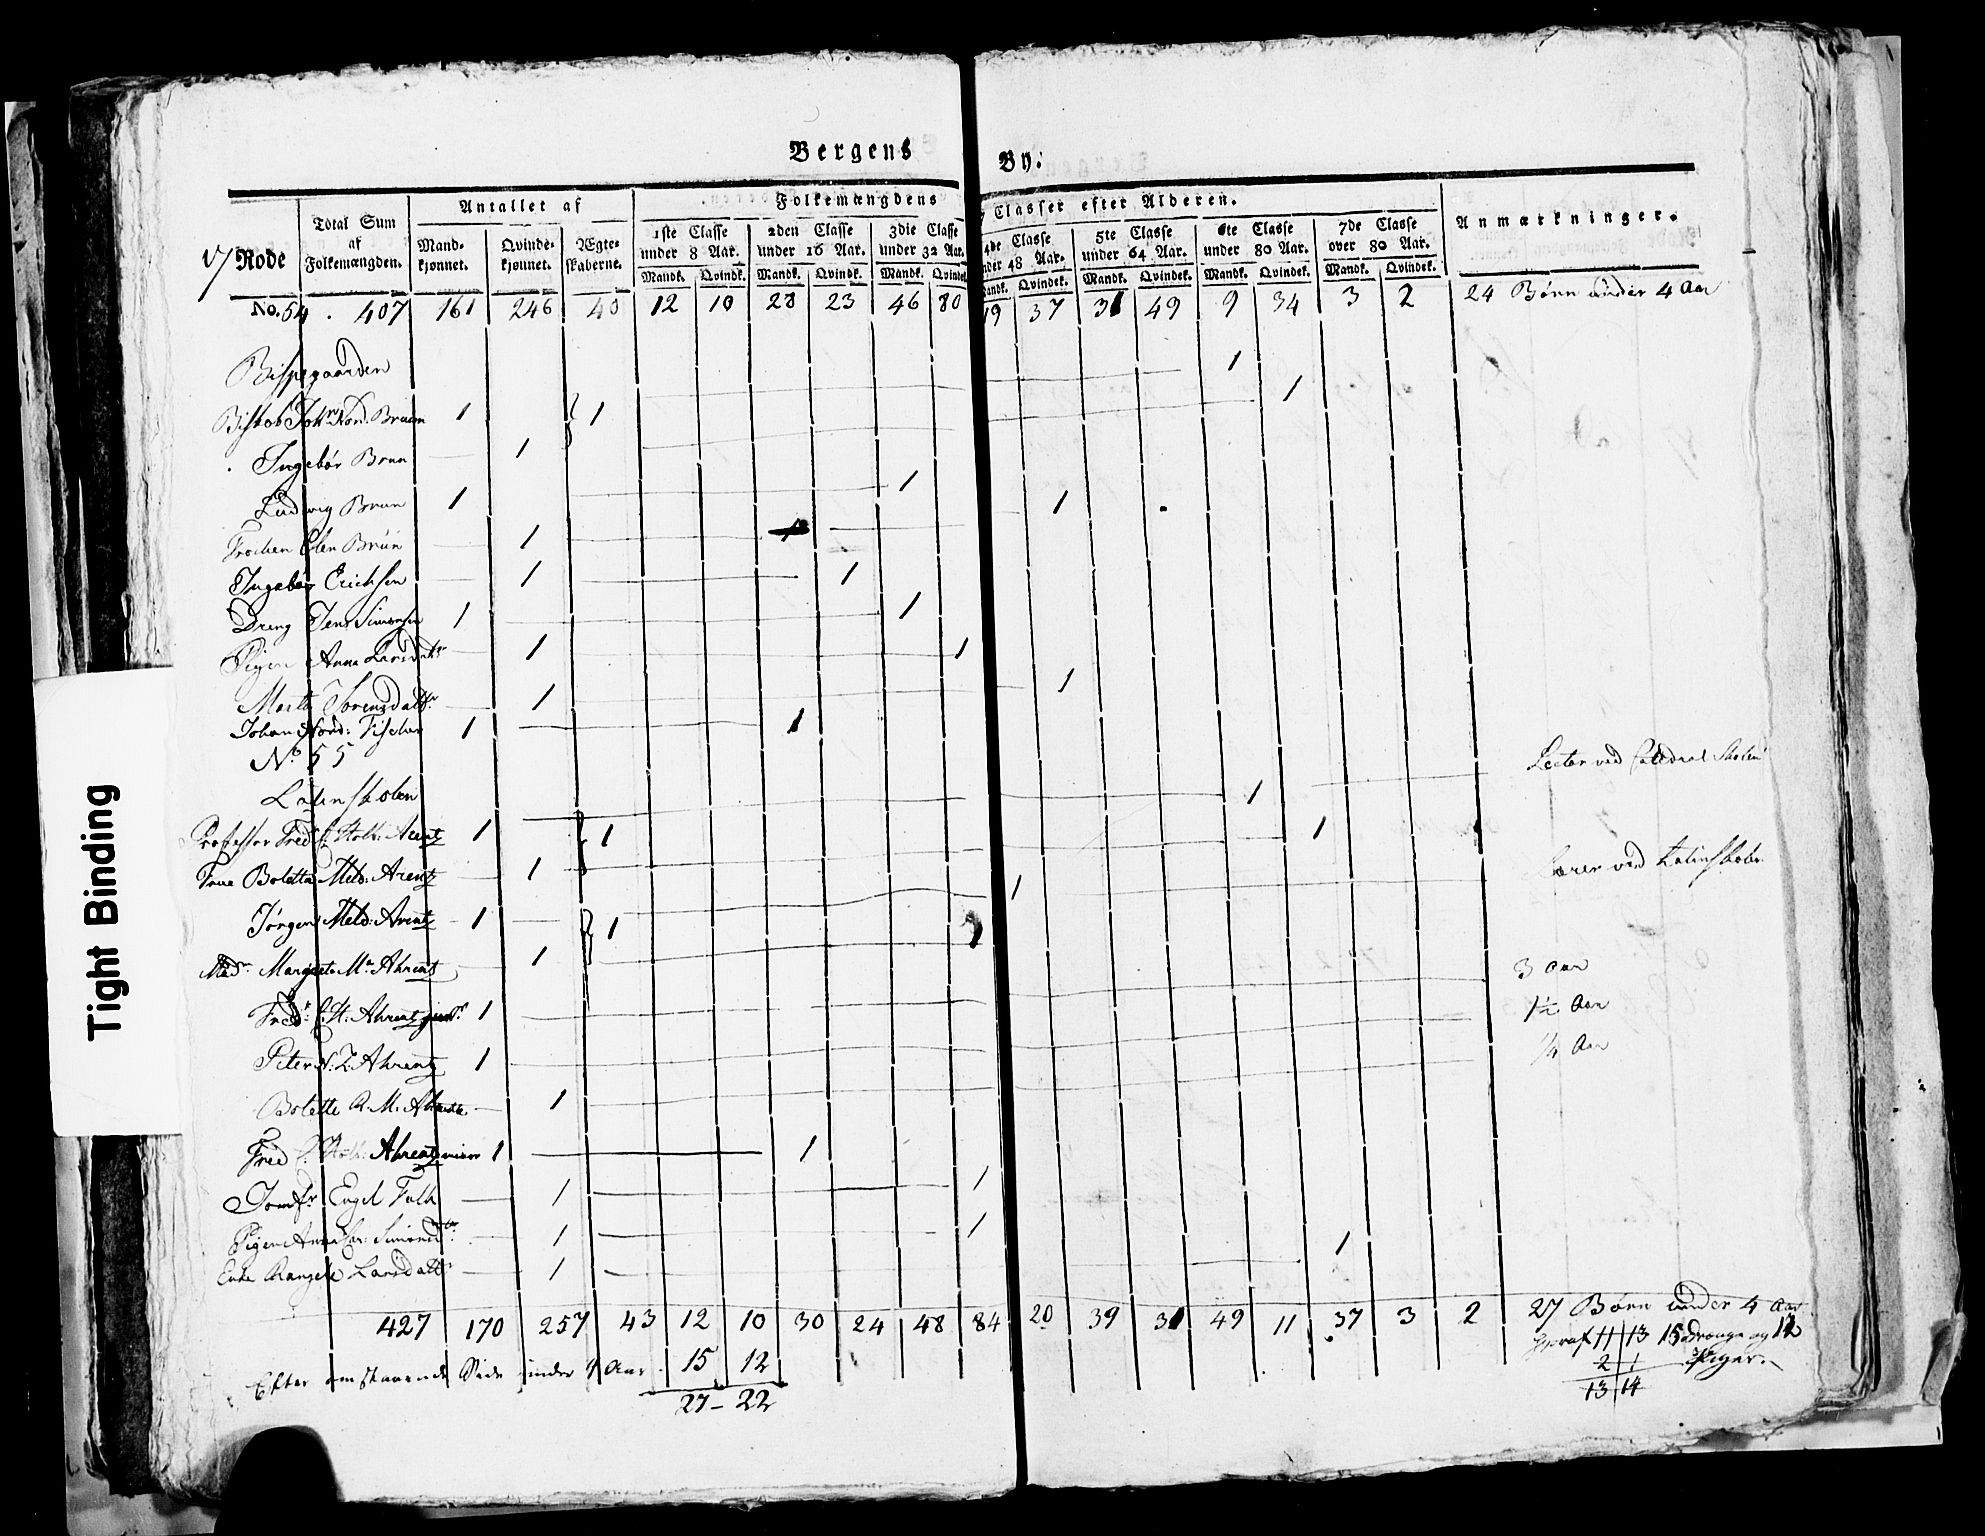 Bergens By.
17 Rode
Total Sum af Folkemængden.
Antallet af
Mandkjønnet.
Qvindekjønnet.
Ægteskaberne.
Folkemængdens Classer efter Alderen.
1ste Classe under 8 Aar.
2den Classe under 16 Aar.
3die Classe under 32 Aar.
4de Classe under 48 Aar.
5te Classe under 64 Aar.
6te Classe under 80 Aar.
7de Classe over 80 Aar.
Anmærkninger.
Mandk. Qvindk. Mandk. Qvindk. Mandk. Qvindek. Mandk. Qvindek. Mandk. Qvindek. Mandk. Qvindek. Mandk. Qvindek.
No. 54 . 407 161 246 40 12 10 28 23 46 80 19 37 31 49 9 34 3 2 24 Børn under 4 Aar
Bispegaarden
Biskob Joh: Nord. Bruun 1 1 1
Ingebør Brun 1 1
Ludwig Brun 1 1
Frøcken Elen Brün 1 1
Ingebør Erichsen 1 1
Dreng Jens Simonsen 1 1
Pigen Anna Larsdatr 1 1
Marta Sorensdattr. 1 1
Johan Nord: Fischer 1 1
No. 55
Latinskolen
Professor Fred C. Holb: Arentz 1 1 1 Lector ved Catedral Skolen
Frue Boletta Melb: Arentz 1 1
Jørgen Melb: Arentz 1 1 1 Lærer ved Latinskolen
Mad. Margreta Ma Ahrentz 1 1
Fredr. C. H: Ahrentz 1 3 Aar
Peter N. Z. Ahrentz 1 1½ Aar
Bolette R. M. Ahrentz 1 ¼ Aar
Fred C. Holb: Ahrentz 1 1
Jomfr Engel Falk 1 1
Pigen Anna Simonsdtr. 1 1
Enke Larsdattr 1 1
427 170 257 43 12 10 30 24 48 84 20 39 31 49 11 37 3 2 27 Børn under 4 Aar
hvoraf 11 13 15 Drenge og 12 Piger
2 1
13 14
Efter omstaaende Side under 4 Aar 15 12
27 - 22
Tight Binding